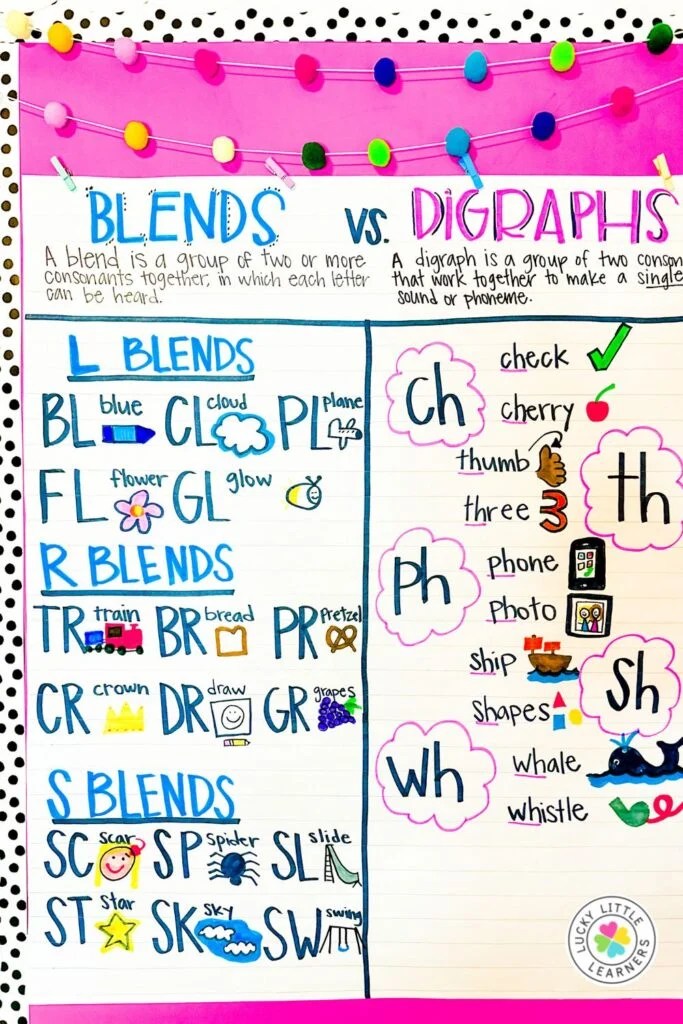 BLENDS VS. DIGRAPHS
A blend is a group of two or more
consonants together, in which each letter
can be heard.
A digraph is a group of two conson
that work together to make a single
sound or phoneme.
L BLENDS
BL blue CL cloud PL plane
FL flower GL glow
R BLENDS
TR train BR bread PR Pretzel
CR crown DR draw GR grapes
S BLENDS
SC scar SP spider SL slide
ST star SK sky SW swing
ch
check
cherry
th
thumb
three
3
ph
phone
photo
sh
ship
shapes
wh
whale
whistle
LUCKY LITTLE
LEARNERS